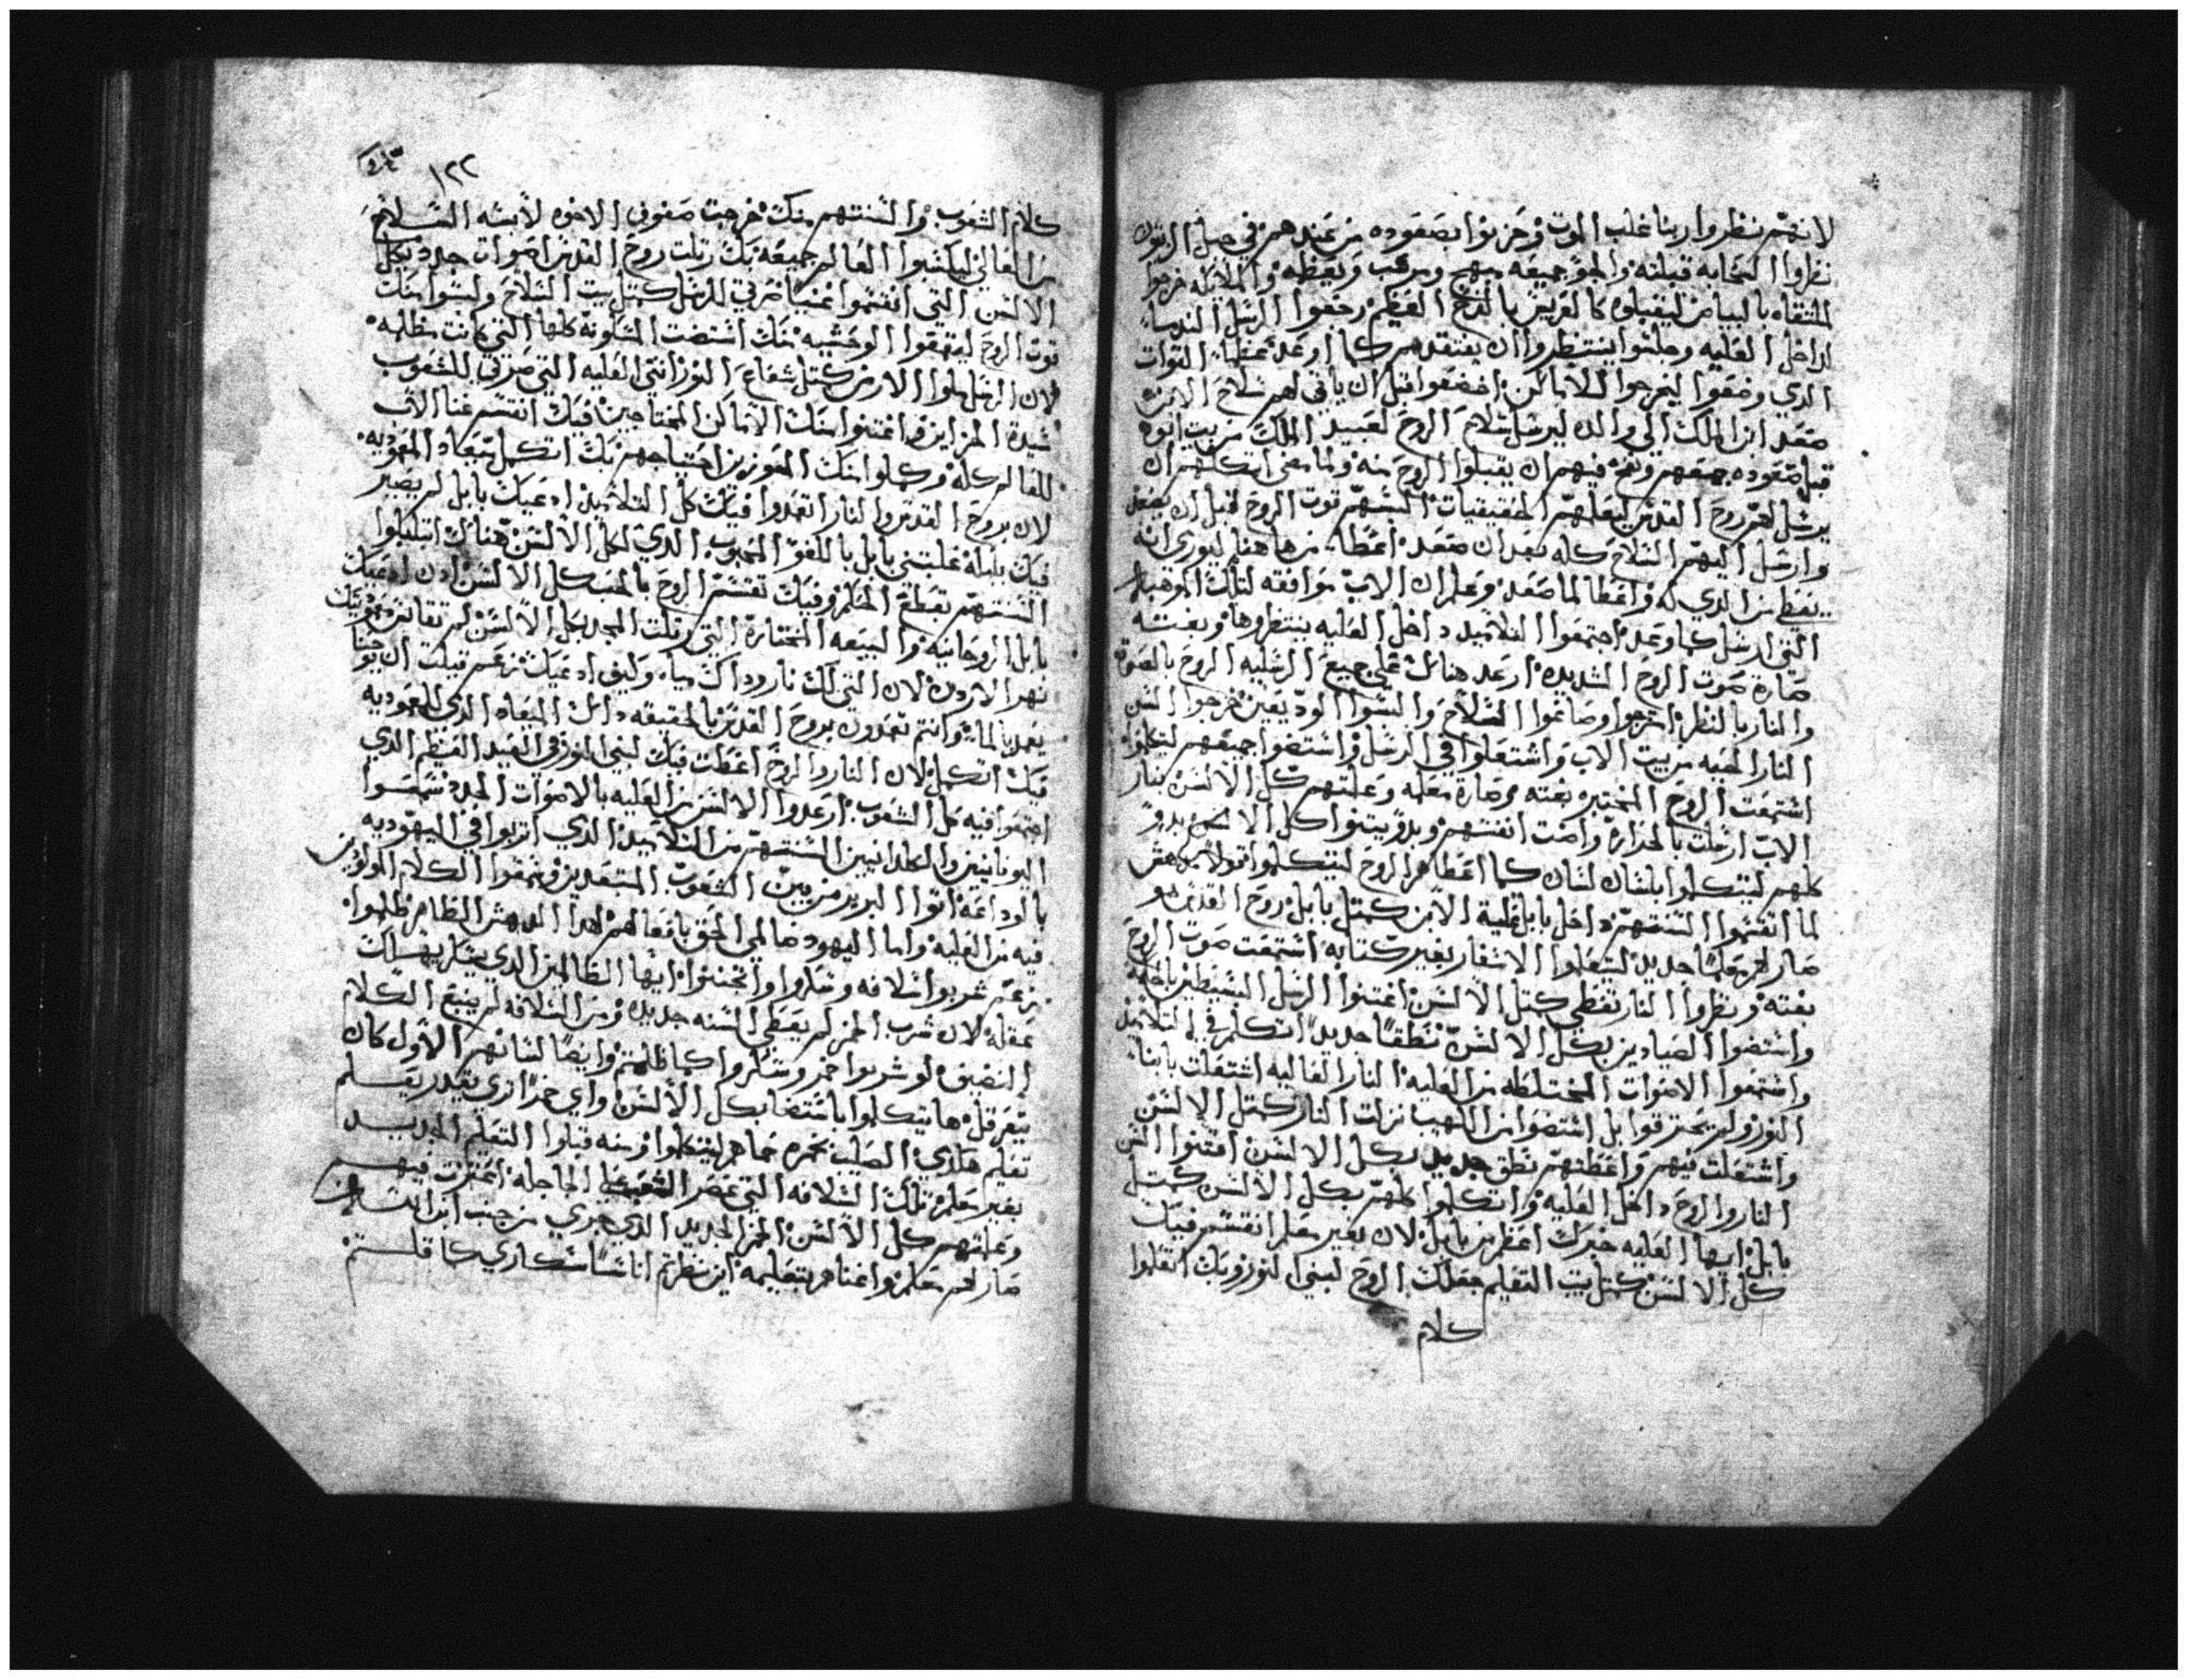 لانهم نظروا ربنا غلب الموت وحزنوا بصعوده من عندهم في جبل الزيتون
نظروا السحابه قبلته والجو جميعه مبهج ومرعب ويعظمه والملائكه خرجوا
للتقاه بالبياض ليقبلوه كالعريس بالفرح العظيم رجعوا الرسل القديسا
لداخل العليه وجلسوا ينتظروا ان يفتقدهم كما اوعد عطا القوات
الذي وضعوا ليخرجوا للاماكن اخضعوا قبل ان ياتي لهم سلاح الابن
صعد ابن الملك الي والده ليرسل سلاح الروح لعبيد الملك من بيت ابوه
قبل صعوده جمعهم ونفخ فيهم ان يقبلوا الروح منه ولما مضي اتكلهم ان
يرسل لهم روح القدس ليعلمهم الحقيقيات البسهم قوت الروح قبل ان يصعد
وارسل اليهم السلاح كله بعد ان صعد اعطا من هاهنا ليوري انه
يعطي من الذي له واعطا لما صعد وعلم ان الاب موافقه لتلك الموهبه
التي ارسل كما وعد اجتمعوا التلاميد داخل العليه ينتظروها وبغتته
صارة صوت الروح الشديده ارعد هناك علي جميع الرسليه الروح بالصوت
والنار بالنظر اخرجوا وصاغوا السلاح والبسوا الوديعين خرجوا السن
النار الحيه من بيت الاب واشتعلوا في الرسل واستضوا جميعهم ليتكلموا
اشتمعت الروح المختبره بغته وصارة معلمه وعلمتهم كل الالسن بنار
الاب ارسلت بالحراره واضت انفسهم وبدو يبينوا كل الالسن بدو
كلهم ليتكلموا بلسان لسان كما اعطاهم الروح ليتكلموا
لما اتقسموا السنتهم داخل بابل علية الابن كمتل بابل روح القدس هو
صار لهم معلماً جديد ليتعلموا الاسفار بغير كتابه اشتمعت صوت الروح
بغته ونظروا النار تعطي كتل الالسن اغتنوا الرسل البسيطين بالحكمه
واستضوا الصيادين بكل الالسن نطقاً جديداً اتكلم في التلاميذ
واشتمعوا الاصوات المختلطه من العليه النار العاليه اشتعلت بابنا
النور ولم يحترقوا بل استضوا من اللهيب نزلت النار كمتل الالسن
واشتعلت فيهم واعطتهم نطق جديد بكل الالسن اقتنوا السن
النار والروح داخل العليه واتكلموا كلهم بكل الالسن كمتل
بابل ايها العليه خبرك اعظم من بابل لان بغير معلم انقسم فيك
كل الالسن كمتل بيت التعليم جعلك الروح لبني النور وبك اتعلموا
كلام
١٢٢
كلام الشعوب والسنتهم منك خرجت صفوني الاخوه لابسه السلاح
من العالي ليكسبوا العالم جميعه بك رتلت روح القدس اصوات جدد بكل
الالسن التي اتقسموا غنيا صرتي للرسل كمتل بيت السلاح ولبسوا منك
قوت الروح ليقهروا الوحشيه منك اشتضت المسكونه كلها التي كانت مظلمه
لان الرسل ملوا الارض كتل شعاع النور انتي العليه التي صرتي للشعوب
سيدة الخزاين واغتنوا منك الاماكن المحتاجين فيك اتقسم غنا الاب
للعالم كله وكملوا منك المعوزين احتياجهم بك اتكمل ميعاد المعموديه
لان بروح القدس والنار اتعمدوا فيك كل التلاميذ ادعيك بابل لم يصير
فيك بلبله غلبتي بابل بالكفو المحبوب الذي لكل الالسن هناك اتبلبلوا
السنتهم بقطع المتكلم وفيك تقسم الروح بالحب كل الالسن ادن ادعيك
بابل الروحانيه والبيعه المختارة التي رتلت المجد بكل الالسن لم تقاس
نهر الاردن لان التي لك نار وداك مياه وكيف ادعيك نزعم قيلت ان يوحنا
يعمد بالماء وانتم تعمدون بروح القدس بالحقيقه دلك الميعاد الذي للمعوديه
فيك اتكمل لان النار والروح اعطت فيك لبني النور في العيد العظيم الذي
اجتمعوا فيه كل الشعوب ارعدوا الالسن من العليه بالاصوات الجدد سمعوا
اليونانيين والكلدانيين السنتهم من التلاميذ الذي اتربوا في اليهوديه
بالوداعه اتوا البربر من بين الشعوب المتبعدين وسمعوا الكلام المولودين
فيه من العليه واما اليهود ضالمي الحق بافعالهم لهذا الدهش الظاهر ظلموا
نزعم شربوا سلافه وسكروا واتجننوا ايها الظالمين الذي يسكر يهلك
عقله لان شرب الخمر لم يعطي السنه جديده ومن السلافه لم ينبع الكلام
النضيف لو شربوا خمر وسكروا كما ظلمتم وايضاً لسانهم الاول كان
يتغير قل ها يتكلموا باستضا بكل الالسن واي خمراً ازي يقدر يعلم
تعليم هكذي الصليب خمره حماهم ليتكلموا ومنه قبلوا التعليم الجديد
بغير معلم تلك السلافه التي عصر الشعب الجاحله اتمزت فيهم
وعلمتهم كل الالسن الخمر الجديد الذي جري من جنب ابن الله
صار لهم معلم واغناهم بتعليمه اين نظرتم اناساً سكاري كما قلتم